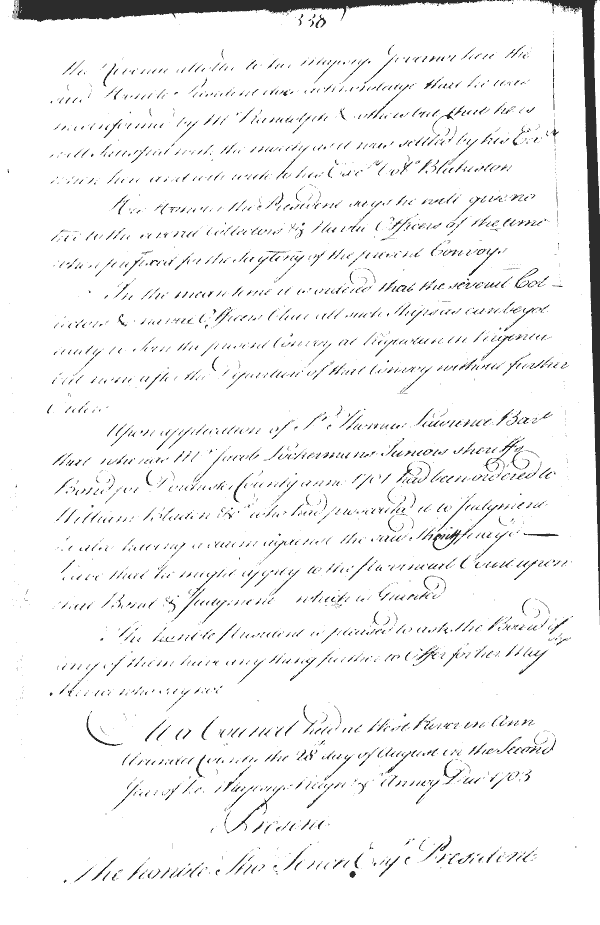 338)
the Revenue allotted to her Majestys Governor here the
said Honble President does acknowledge that he was
misinformed by Mr Randolph & others but that he is
well satisfied with the same as it now settled by his Exncy
when here and will write to his Excy Coll Blakiston
His Honour the President says he will give no
tice to the several Collectors & Navall Officers of the time
when prefixed for the Sayling of the present Convoys
In the mean time it is ordered that the severall Col
lectors & navall Officers Clear all such Ships as can be got
ready to Joyn the present Convoy at Kiquotan in Virginia
but none after the Departure of that Convoy without further
Orders
Upon application of Sr Thomas Laurence Bart
that whereas Mr Jacob Lockermans Juniors sheriffs
Bond for Dorchester County anno 1701 had been ordered to
William Bladen Esqr who had prosecuted it to Judgment
he also having a claim against the said Sheriff prays
Leave that he might apply to the Provincial Court upon
said Bond & Judgment which is Granted
The honble President is pleased to ask the Board if
any of them have any thing further to Offer for her Majtys
Service who say not
At a Council held at West River in Ann
Arundel County the 28th day of August in the Second
Year of her Majestys Reign &c Annoq Dni 1703
Present
The honble Tho Tench Esqr President